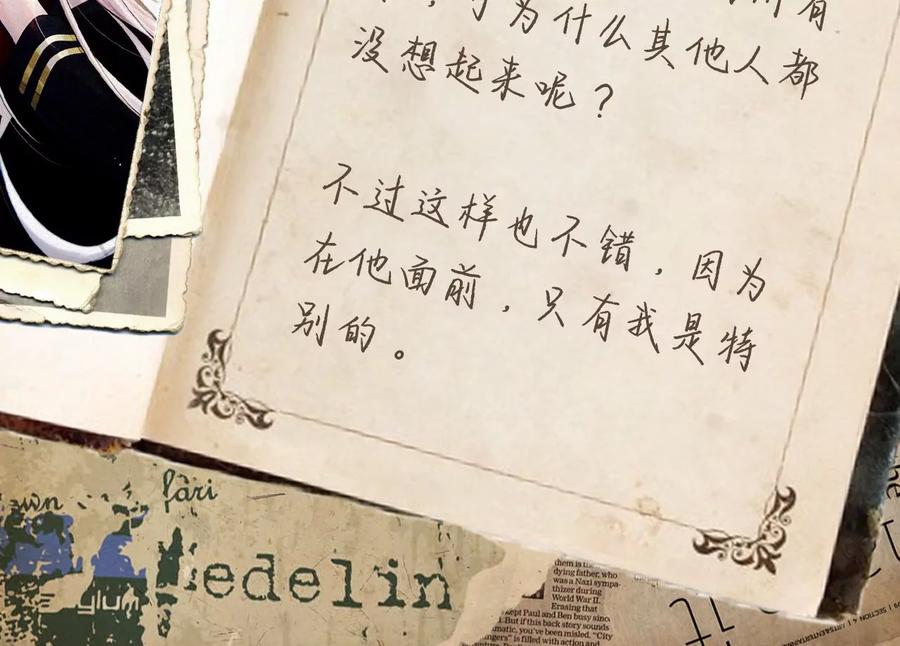 ，可为什么其他人都
没想起来呢？
不过这样也不错，因为
在他面前，只有我是特
别的。
fari
edelin
dying father, who
was a Nazi sympa-
thizer during
World War II.
Erasing that
kept Paul and Ben busy since
But if this back story sounds
matic, you've been misled. "City
is filled with action and